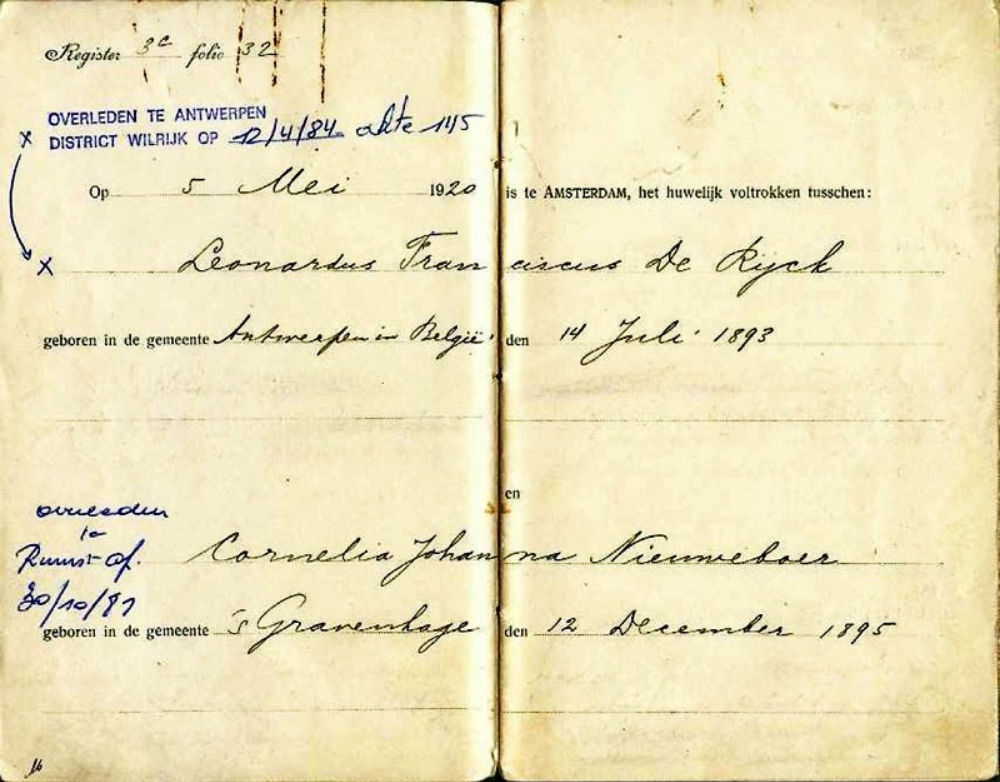 Register 3c folio 32
OVERLEDEN TE ANTWERPEN
x DISTRICT WILRIJK OP 12/4/84 akte 145
Op 5 Mei 1920 is te AMSTERDAM, het huwelijk voltrokken tusschen:
x Leonardus Franciscus De Rijck
geboren in de gemeente Antwerpen in België den 14 Juli 1893
en
overleden
te
Rumst op.
Cornelia Johanna Nieuweboer
30/10/81
geboren in de gemeente 's Gravenhage den 12 December 1895
16